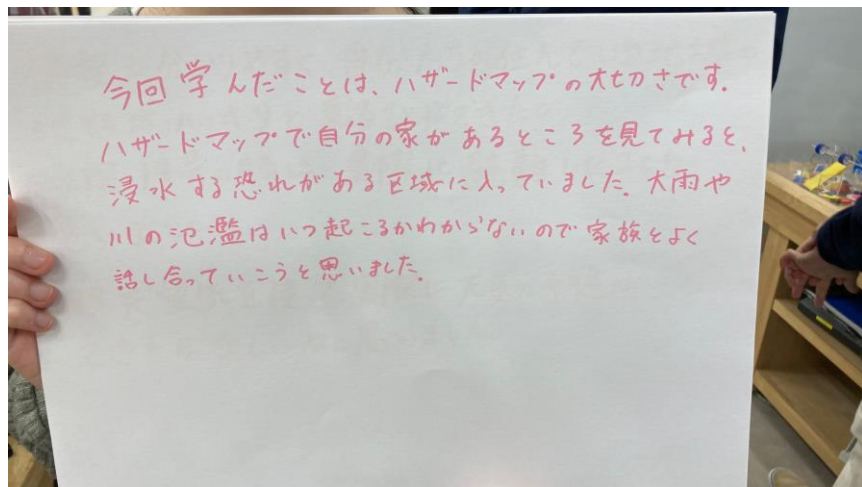 今回学んだことは、ハザードマップの大切さです。
ハザードマップで自分の家があるところを見てみると、
浸水する恐れがある区域に入っていました。大雨や
川の氾濫はいつ起こるかわからないので家族とよく
話し合っていこうと思いました。